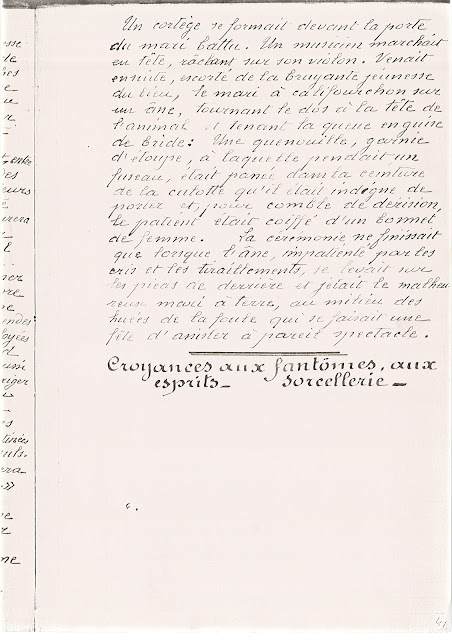 Un cortège se formait devant la porte
du mari battu. Un musicien marchait
en tête, raclant sur son violon. Venait
ensuite, escorté de la bruyante jeunesse
du lieu, le mari à califourchon sur
un âne, tournant le dos à la tête de
l'animal et tenant la queue en guise
de bride: Une quenouille, garnie
d'étoupe, à laquelle pendait un
fuseau, était passée dans la ceinture
de la culotte qu'il était indigne de
porter et, pour comble de dérision,
le patient était coiffé d'un bonnet
de femme. La cérémonie ne finissait
que lorsque l'âne, impatienté par les
cris et les tiraillements, se levait sur
les pieds de derrière et jetait le malheu
reux mari à terre, au milieu des
huées de la foule qui se faisait une
fête d'assister à pareil spectacle.
Croyances aux fantômes, aux
esprits_ sorcellerie_